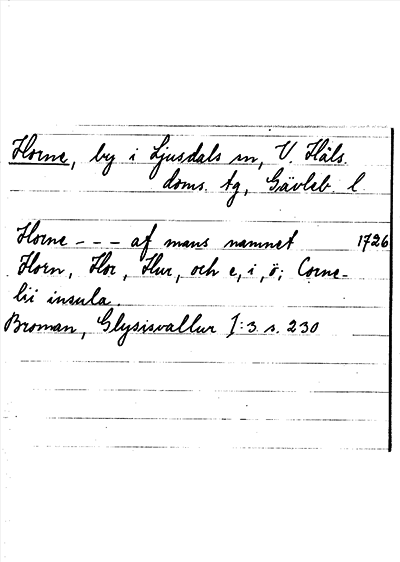 Horne, by i Ljusdals sn, V. Häls.
doms. tg, Gävleb. l.
Horne - - - af mans namnet 1726
Horn, Hor, Hur, och e, i, ö; Corne-
lii insula.
Broman, Glysisvallur I:3 s. 230